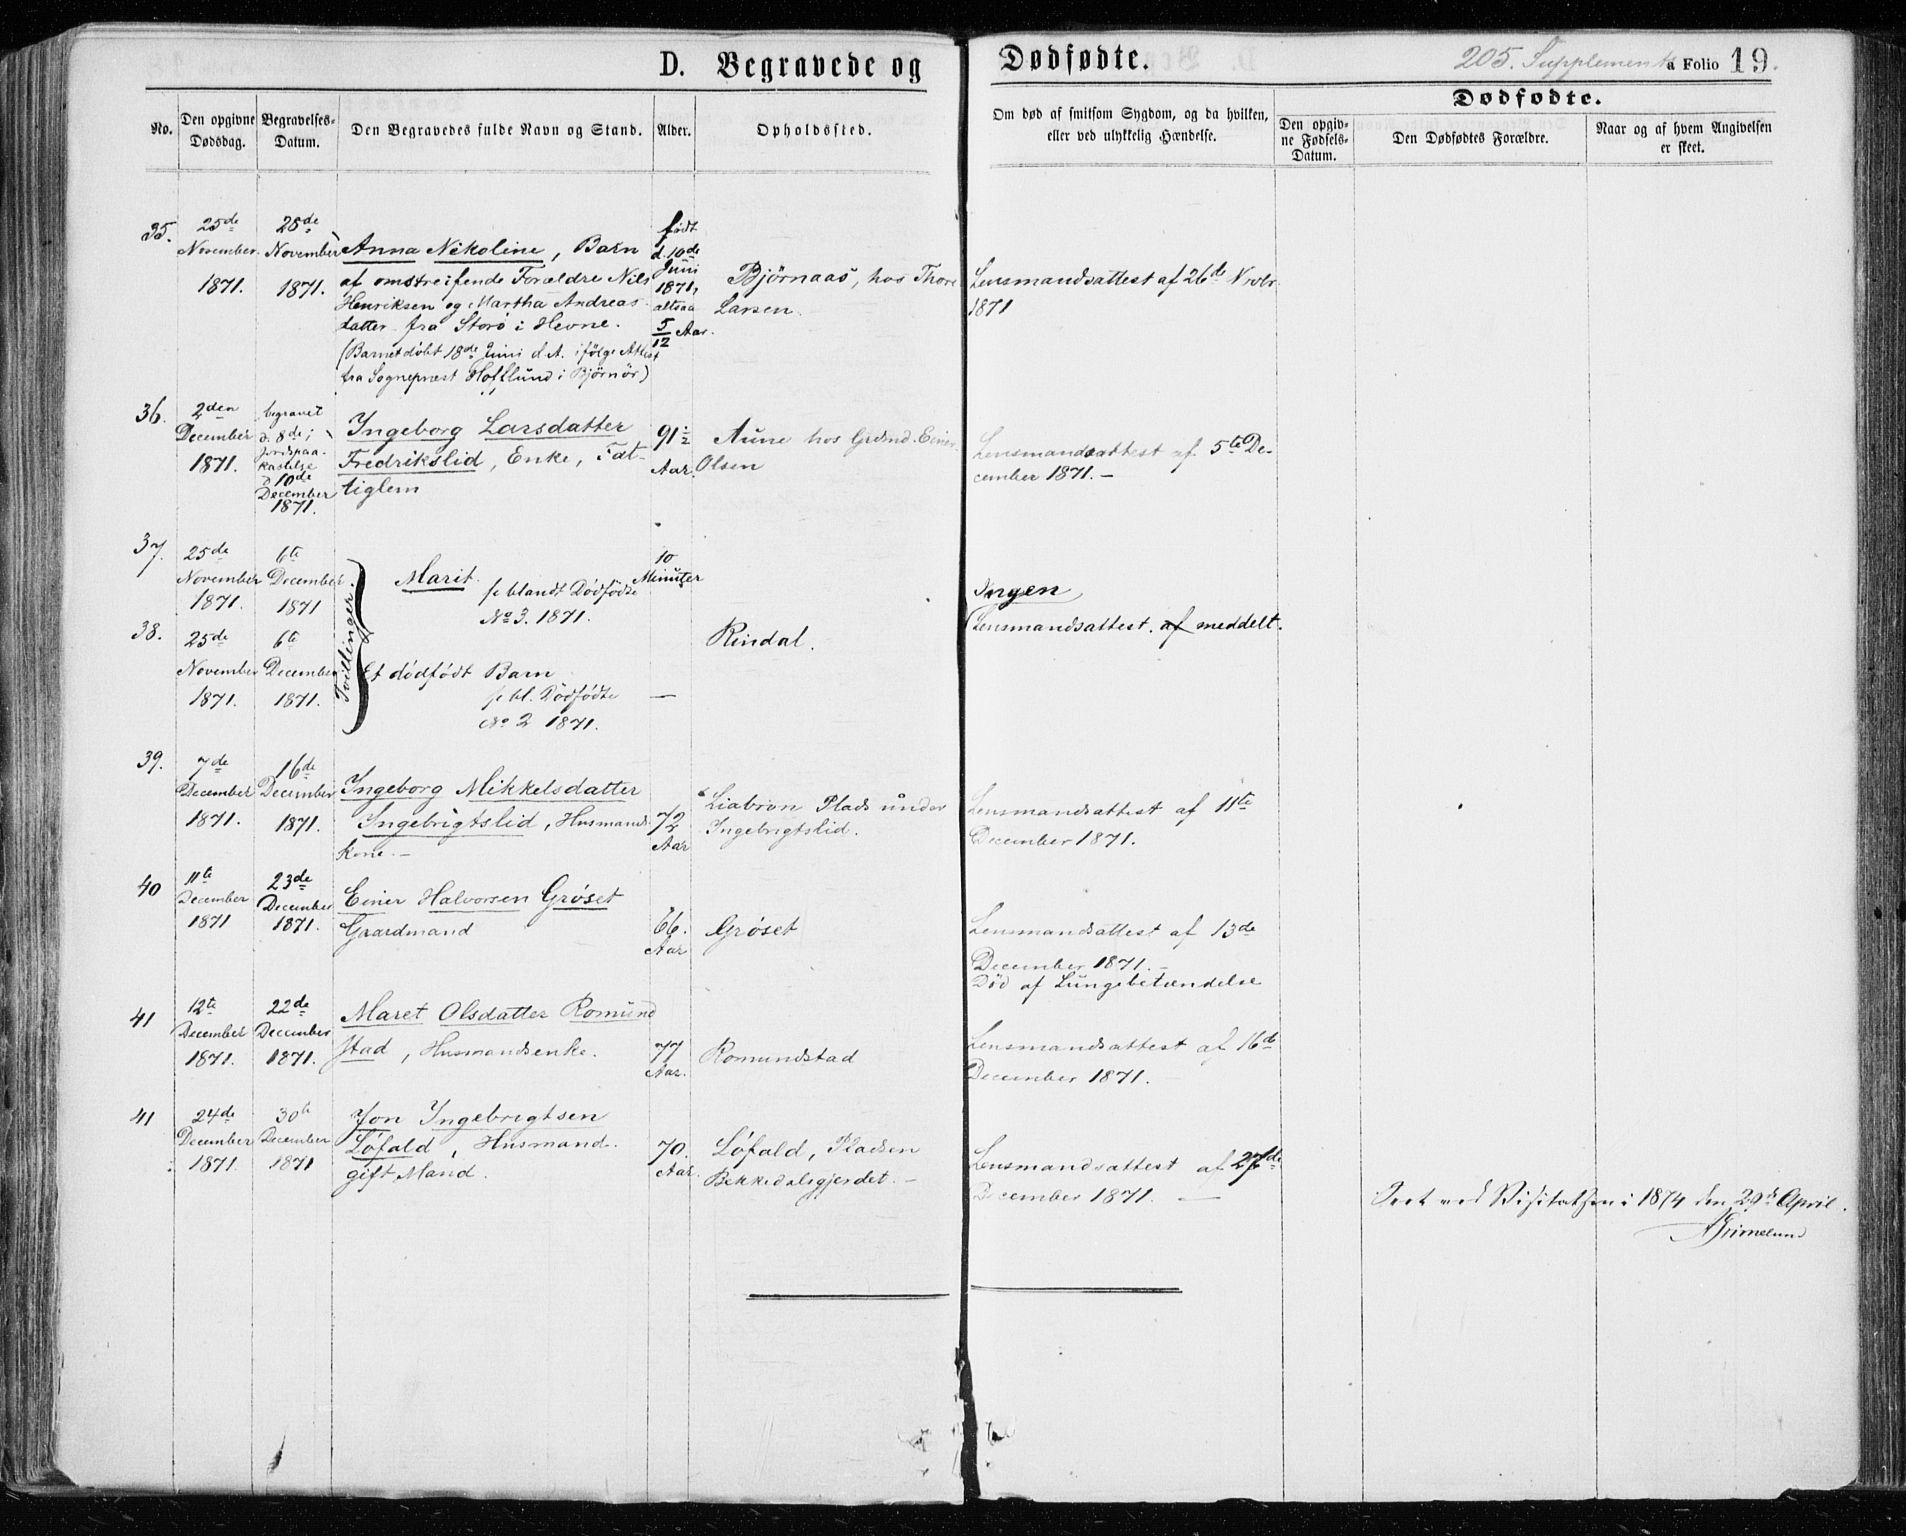 D. Begravede og Dødfødte.
205. Supplement a Folio 19.
No.
Den opgivne
Dødsdag.
Begravelses-
Datum.
Den Begravedes fulde Navn og Stand.
Alder.
Opholdssted.
Om død af smitsom Sygdom, og da hvilken,
eller ved ulykkelig Hændelse.
Dødfødte.
Den opgiv-
ne Fødsels-
Datum.
Den Dødfødtes Forældre.
Naar og af hvem Angivelsen
er skeet.
35.
25de
November
1871.
28de
November
1871.
Anna Nikoline, Barn
af omstreifende Forældre Nils
Henriksen og Martha Andreas-
datter fra Storø i Hevne.
(Barnet døbt 18de Juni d. A. ifølge Attest
fra Sognepræst Hofflund i Bjørnör)
født
d. 10de
Juni
1871,
altsaa
5/12 Aar.
Bjørnaas, hos Thore
Larsen.
Lensmandsattest af 26de Novbr
1871
36.
2den
December
1871.
begravet
d. 8de;
Jordspaa-
kastelse
d 10de
December
1871.
Ingeborg Larsdatter
Fredrikslid, Enke, Fat-
tiglem
91½
Aar.
Aune hos Grdmd. Einer
Olsen
Lensmandsattest af 5te De-
cember 1871. —
37.
25de
November
1871.
6te
December
1871
Tvillinger.
Marit.
se blandt Dødfødte
No 3. 1871.
10
Minuter
Ingen
Lensmandsattest. af meddelt.
38.
25de
November
1871.
6te
December
1871.
Et dødfødt Barn
se bl. Dødfødte
No 2 1871.
—
Rindal.
39.
7de
December
1871.
16de
December
1871.
Ingeborg Mikkelsdatter
Ingebrigtslid, Husmands
kone. —
72
Aar
Liabrøn Plads under
Ingebrigtslid.
Lensmandsattest af 11te
December 1871.
40
11te
December
1871
23de
December
1871.
Einer Halvorsen Grøset
Gaardmand
66.
Aar
Grøset
Lensmandsattest af 13de
December 1871. —
Død af Lungebetændelse
41
12te
December
1871.
22de
December
1871.
Maret Olsdatter Romund
stad, Husmandsenke.
77
Aar.
Romundstad
Lensmandsattest af 16de
December 1871. —
41
24de
December
1871.
30te
December
1871
Jon Ingebrigtsen
Løfald, Husmand.
gift Mand.
70.
Aar.
Løfald, Pladsen
Bekkedalsgjerdet. —
Lensmandsattest af 27de
December 1871. —
Seet ved Visitatsen i 1874 den 29de April.
AGrimelund